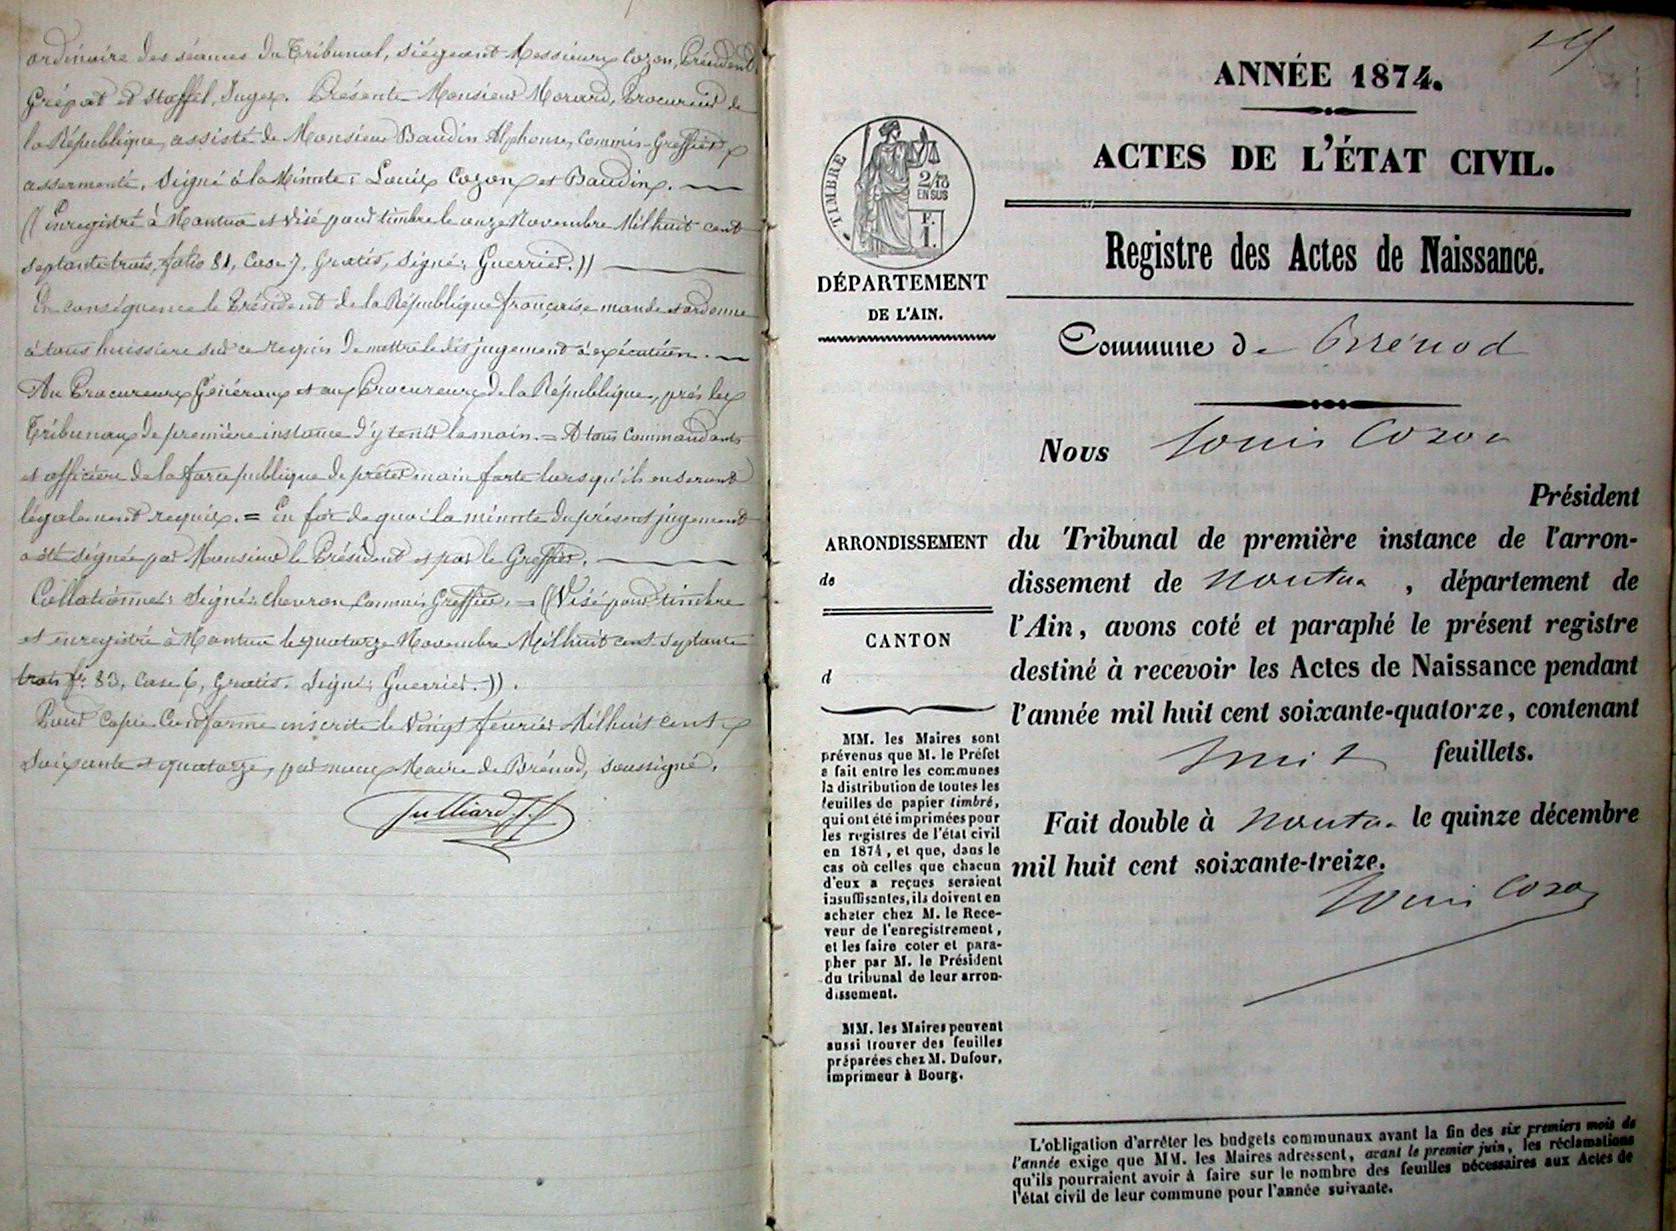 ordinaire des séances du Tribunal, siégeant Messieurs Cozon, Président,
Grépat et Stoffel, Juges. Présente Monsieur Morard, Procureur de
la République, assisté de Monsieur Baudin Alphonse, Commis-Greffier
assermenté. Signé à la Minute: Louis Cozon et Baudin.
(( Enregistré à Nantua et visé pour timbre le onze Novembre Mil huit cent
septante trois, folio 81, Case 7, Gratis, signé: Guerrier. ))
En conséquence le Président de la République française mande et ordonne
à tous huissiers sur ce requis de mettre le dit jugement à exécution.
Au Procureurs Généraux et aux Procureurs de la République, près les
Tribunaux de première instance d'y tenir la main. = A tous Commandants
et officiers de la force publique de prêter main forte lorsqu'ils en seront
légalement requis. = En foi de quoi la minute du présent jugement
a été signée par Monsieur le Président et par le Greffier.
Collationné: Signé: Chevron Commis Greffier. = ((Visé pour timbre
et enregistré à Nantua le quatorze Novembre Mil huit cent septante
trois f° 83, Case 6, Gratis. Signé: Guerrier. )).
Pour Copie Conforme inscrite le vingt février Mil huit cent
soixante et quatorze, par nous Maire de Brénod, soussigné.
Julliard
ANNÉE 1874.
ACTES DE L'ÉTAT CIVIL.
TIMBRE
2/10
EN SUS
F.
1.
DÉPARTEMENT
DE L'AIN.
Registre des Actes de Naissance.
Commune de Brénod
Nous Louis Cozon
Président
du Tribunal de première instance de l'arron-
dissement de Nantua , département de
l'Ain, avons coté et paraphé le présent registre
destiné à recevoir les Actes de Naissance pendant
l'année mil huit cent soixante-quatorze, contenant
huit feuillets.
Fait double à Nantua le quinze décembre
mil huit cent soixante-treize.
Louis Cozon
ARRONDISSEMENT
de
CANTON
d
MM. les Maires sont
prévenus que M. le Préfet
a fait entre les communes
la distribution de toutes les
feuilles de papier timbré,
qui ont été imprimées pour
les registres de l'état civil
en 1874, et que, dans le
cas où celles que chacun
d'eux a reçues seraient
insuffisantes, ils doivent en
acheter chez M. le Rece-
veur de l'enregistrement,
et les faire coter et para-
pher par M. le Président
du tribunal de leur arron-
dissement.
MM. les Maires peuvent
aussi trouver des feuilles
préparées chez M. Dufour,
imprimeur à Bourg.
L'obligation d'arrêter les budgets communaux avant la fin des six premiers mois de
l'année exige que MM. les Maires adressent, avant le premier juin, les réclamations
qu'ils pourraient avoir à faire sur le nombre des feuilles nécessaires aux Actes de
l'état civil de leur commune pour l'année suivante.